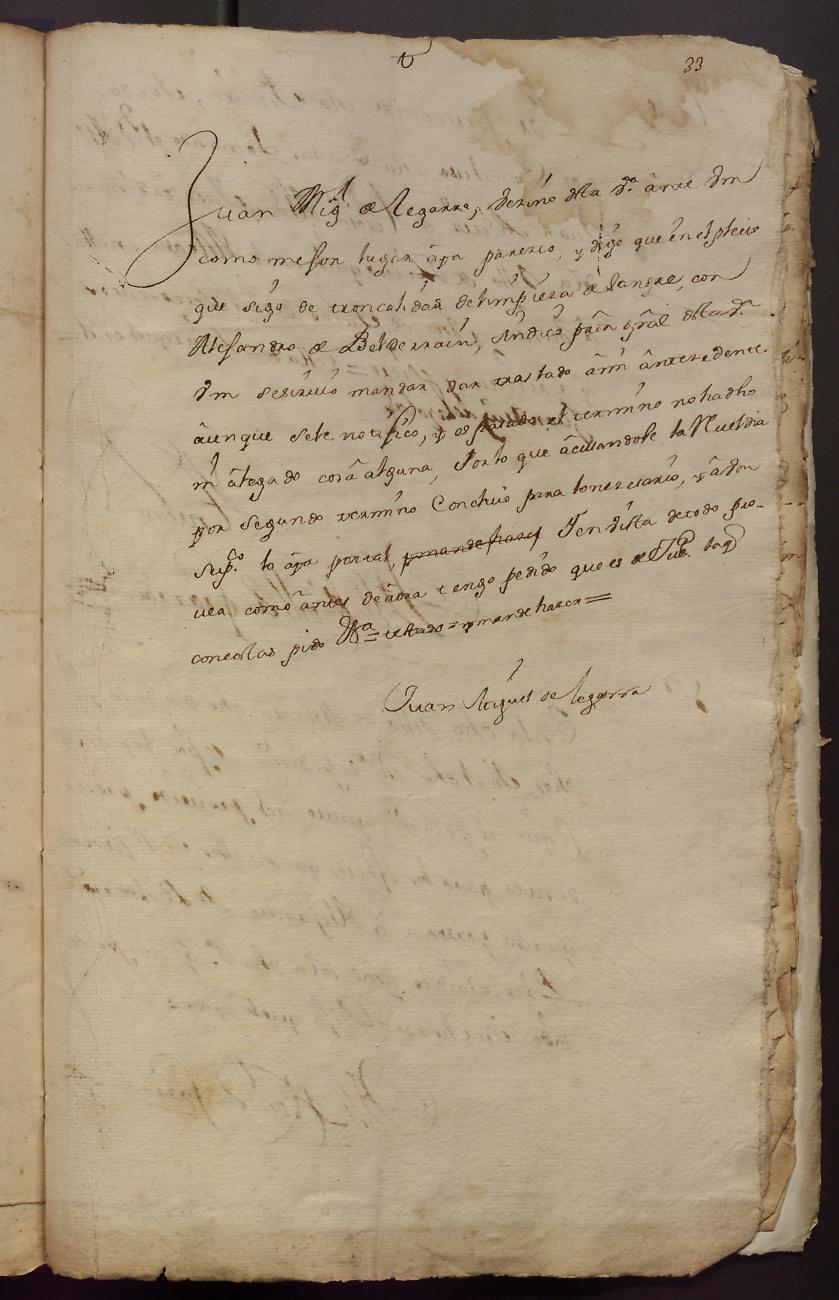 33
Juan Migl de legarra, vezino dsta Va ante Vm
como mejor lugar aya parezco, y digo que en el pleito
que sigo de troncalidad de limpieza de sangre, con
Alesandro de Belderrain, sindico prôn gral dsta Va
Vm se sirvio mandar dar traslado a mi antezedente
aunque se le notifico, y es pasado el termino no ha dho
ni alegado cosa alguna, Por lo que acusandole la Rueldia
por segundo termino Concluio para lo nezesario, y a Vm
Supco lo aya por tal, y mande hazer Y en vista de todo pro-
vea como antes de aora tengo pedido que es de Justa la qe
con costas pido Va = testado = y mande hazer =
Juan Miguel de legarra